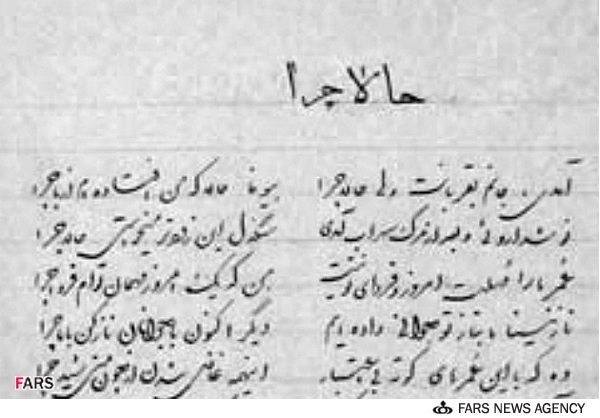 حالا چرا
آمدی، جانم بقربانت ولی حالا چرا بیوفا حالا که من افتاده‌ام از پا چرا
نوشداروئی و بعد از مرگ سهراب آمدی سنگدل این زودتر میخواستی حالا چرا
عمر ما را مهلت امروز و فردای تو نیست من که یک امروز مهمان توام فردا چرا
نازنینا ما بناز تو جوانی داده‌ایم دیگر اکنون با جوانان ناز کن با ما چرا
وه که با این عمرهای کوته بی اعتبار اینهمه غافل شدن از چون منی شیدا چرا
FARS
FARS NEWS AGENCY